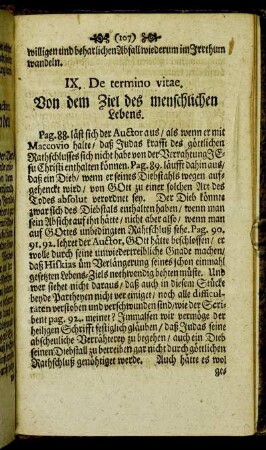 (107)
willigen und beharlichen Abfall wiederum im Irrthum
wandeln.
IX. De termino vitae.
Von dem Ziel des menschlichen
Lebens.
Pag. 88. läst sich der Auctor aus / als wenn er mit
Maccovio halte / daß Judas krafft des göttlichen
Rathschlusses sich nicht habe von der Verrahtung JE-
su Christi enthalten können. Pag. 89. läufft dahin aus/
daß ein Dieb / wenn er seines Diebstahls wegen auf-
gehenckt wird / von GOtt zu einer solchen Art des
Todes absolut verordnet sey. Der Dieb könnte
zwar sich des Diebstals enthalten haben / wenn man
sein Absicht auf ihn hätte / nicht aber also / wenn man
auf GOttes unbedingten Rathschluß sehe. Pag. 90.
91. 92. lehret der Auctor, GOtt hätte beschlossen / er
wolle durch seine unwiederreibliche Gnade machen/
daß Hiskias üm Verlängerung seines schon einmahl
gesetzten Lebens-Ziels nothwendig behten müste. Und
wer siehet nicht daraus / daß auch in diesem Stücke
beyde Partheyen nicht vereiniget / noch alle difficul-
täten verstoben und verschwunden sind / wie der Scri-
bent pag. 92. meinet? Immassen wir vermöge der
heiligen Schrifft festiglich gläuben / daß Judas seine
abscheuliche Verrähterey zu begehen / auch ein Dieb
seinen Diebstall zu betreiben gar nicht durch göttlichen
Rathschluß genöhtiget werde. Auch hätte es wol
ge-